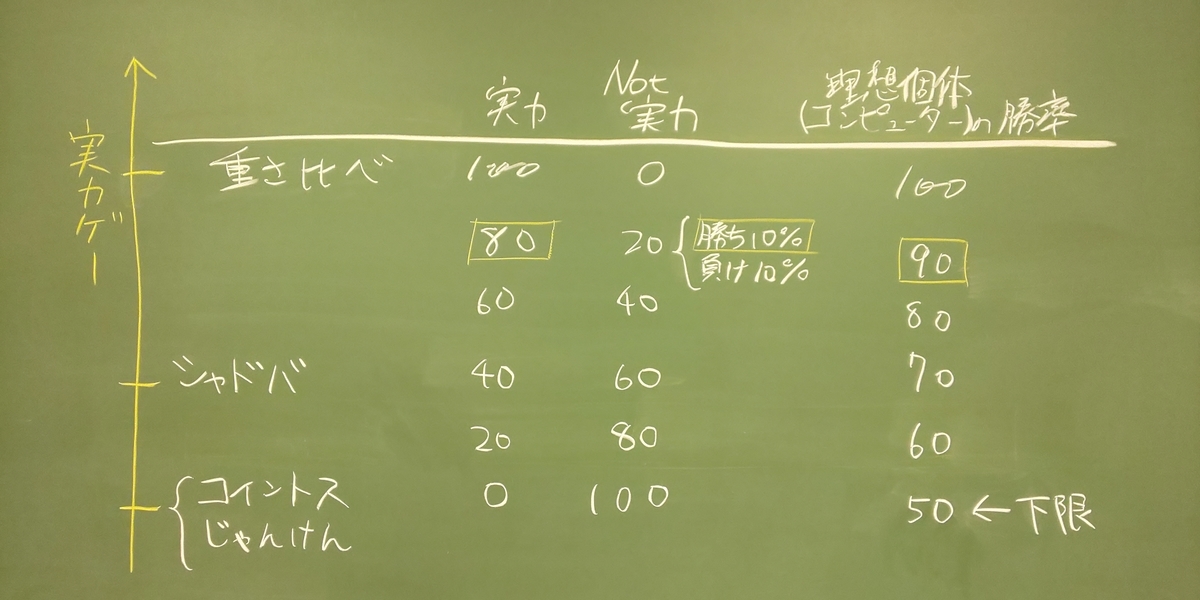 実力ゲー
実力
Not
実力
理想個体
(コンピューター)の勝率
重さ比べ 100 0 100
80 20 勝ち10% 90
負け10%
60 40 80
シャドバ 40 60 70
20 80 60
コイントス
じゃんけん
0 100 50 ← 下限